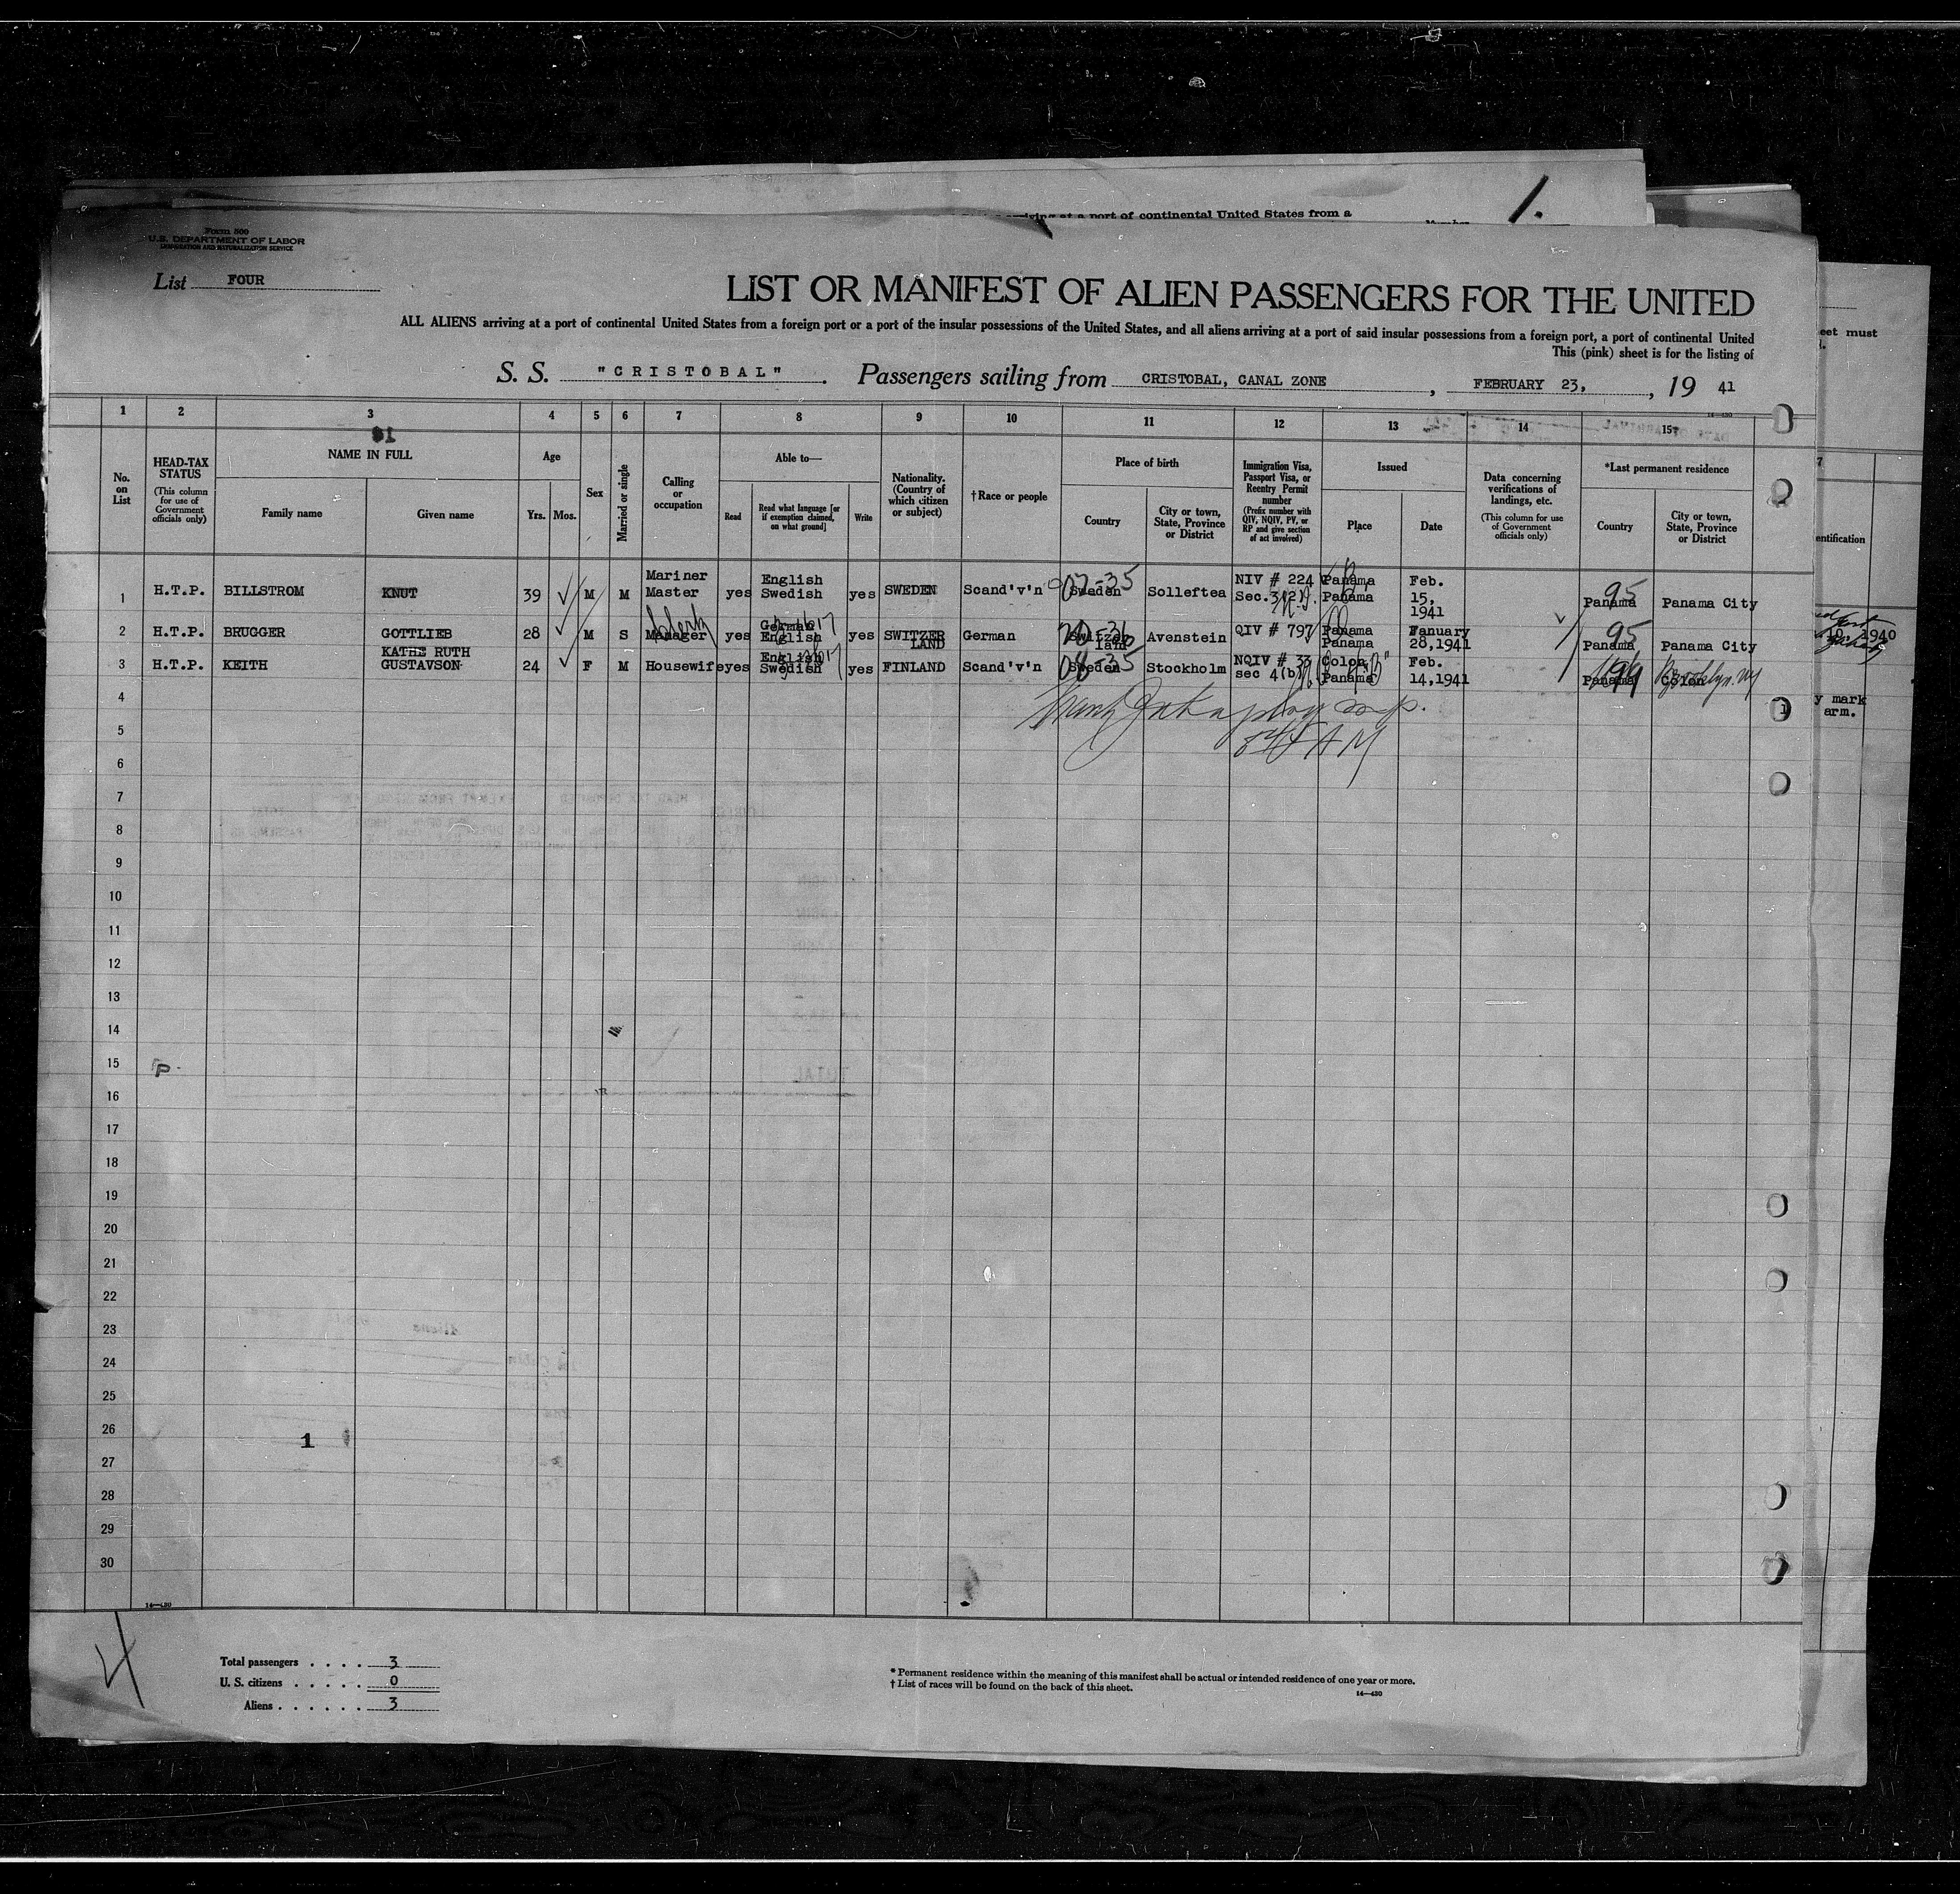 arriving at a port of continental United States from a
1.
Form 500
U.S. DEPARTMENT OF LABOR
IMMIGRATION AND NATURALIZATION SERVICE
List FOUR
LIST OR MANIFEST OF ALIEN PASSENGERS FOR THE UNITED
ALL ALIENS arriving at a port of continental United States from a foreign port or a port of the insular possessions of the United States, and all aliens arriving at a port of said insular possessions from a foreign port, a port of continental United
This (pink) sheet is for the listing of
eet must
S. S. "CRISTOBAL". Passengers sailing from CRISTOBAL, CANAL ZONE, FEBRUARY 23, 19 41
14—430
1 2 3 4 5 6 7 8 9 10 11 12 13 14 15
No. on List
HEAD-TAX STATUS
(This column for use of Government officials only)
NAME IN FULL
Family name
Given name
Age
Yrs. Mos.
Sex
Married or single
Calling or occupation
Able to—
Read
Read what language [or if exemption claimed, on what ground]
Write
Nationality. (Country of which citizen or subject)
†Race or people
Place of birth
Country
City or town, State, Province or District
Immigration Visa, Passport Visa, or Reentry Permit number
(Prefix number with QIV, NQIV, PV, or RP and give section of act involved)
Issued
Place
Date
Data concerning verifications of landings, etc.
(This column for use of Government officials only)
*Last permanent residence
Country
City or town, State, Province or District
entification
1 H.T.P. BILLSTROM KNUT 39 M M Mariner Master yes English Swedish yes SWEDEN Scand'v'n Sweden 07-35 Solleftea NIV # 224 Sec.3(2). Panama Panama Feb. 15, 1941 95 Panama Panama City
2 H.T.P. BRUGGER GOTTLIEB 28 M S Manager yes German English yes SWITZER LAND German Switzer land Avenstein QIV # 797 Panama Panama January 28,1941 95 Panama Panama City
10, 1940
3 H.T.P. KEITH KATHE RUTH GUSTAVSON 24 F M Housewife yes English Swedish yes FINLAND Scand'v'n Sweden 08-35 Stockholm NQIV # 33 sec 4(b) Colon, Panama Feb. 14,1941 99 Panama Colon Brooklyn. NY
4
y mark
arm.
5
6
7
8
9
10
11
12
13
14
15
16
17
18
19
20
21
22
23
24
25
26
1
27
28
29
30
14—430
4
Total passengers . . . . 3
U. S. citizens . . . . . 0
Aliens . . . . . . 3
* Permanent residence within the meaning of this manifest shall be actual or intended residence of one year or more.
† List of races will be found on the back of this sheet.
14—430